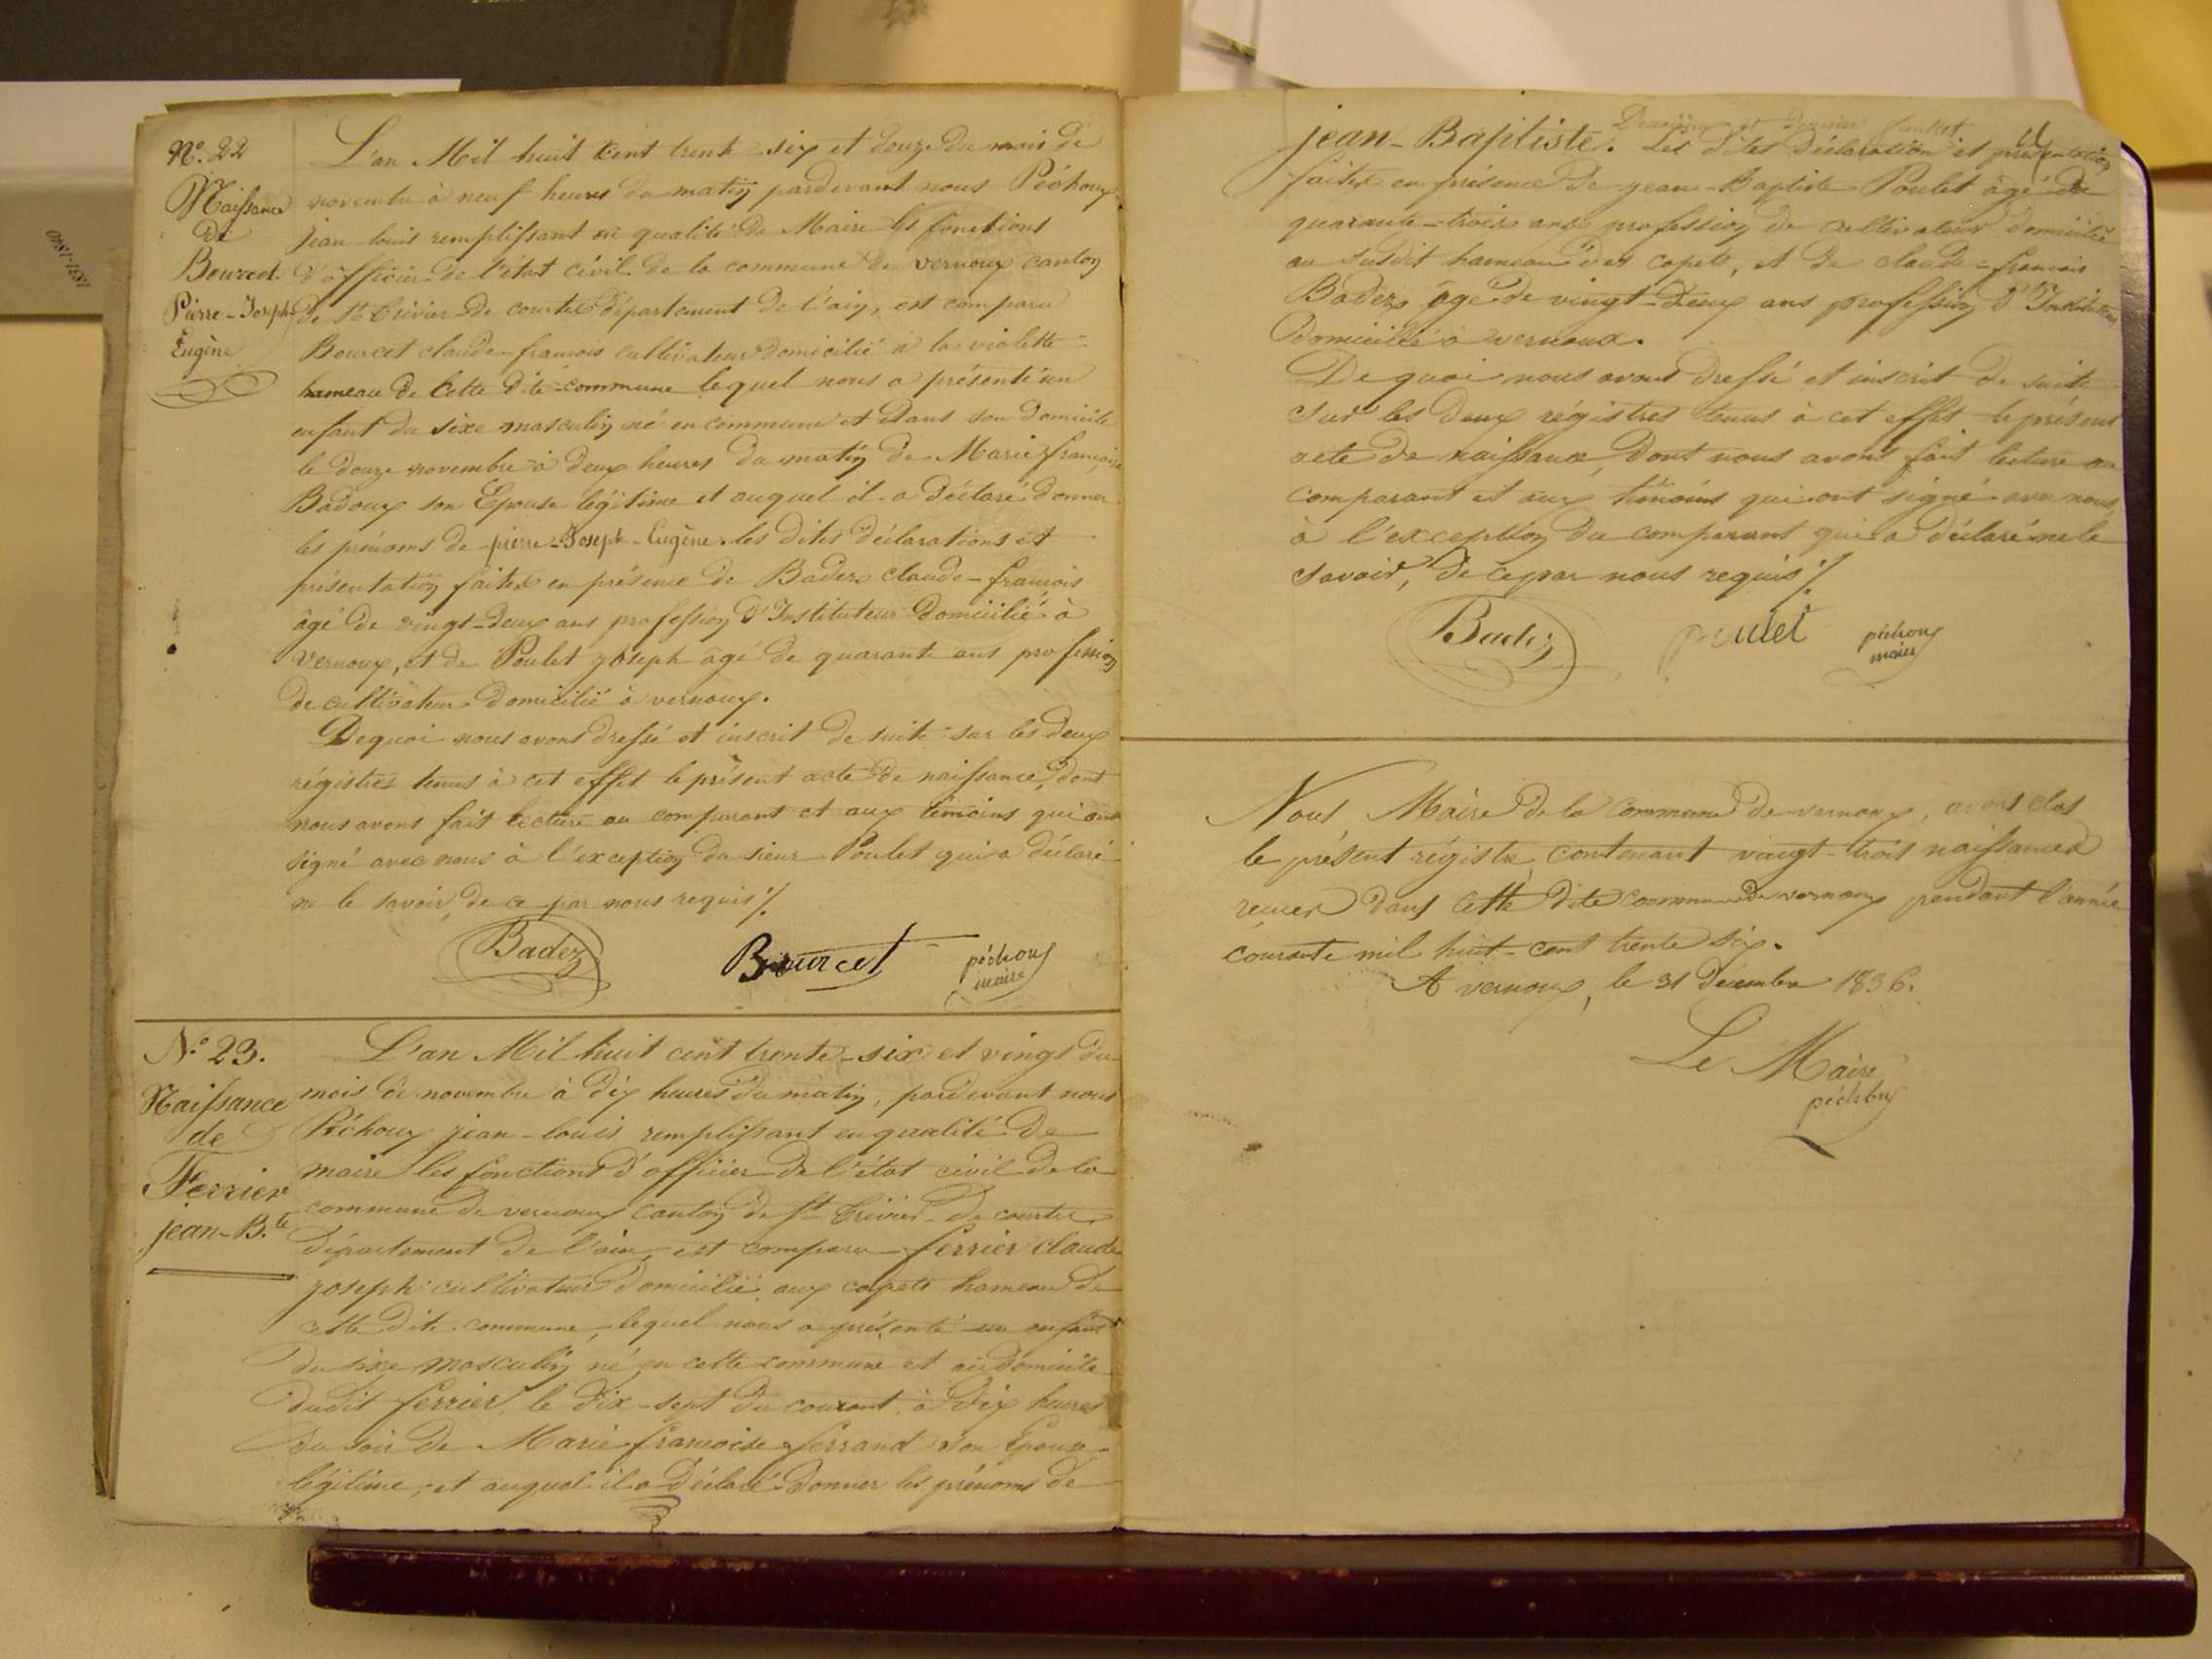 N.o 22
Naissance
De
Bourcet
Pierre-Joseph
Eugène
L'an Mil huit Cent trente-six et douze du mois de
novembre à neuf heures du matin pardevant nous Péchoux
jean-louis remplissant en qualité de Maire les fonctions
d'officier de l'état civil de la commune de vernoux canton
de St Trivier de courtes département de l'ain, est comparu
Bourcet claude-francois cultivateur domicilié à la violette
hameau de Cette dite commune lequel nous a présenté un
enfant du sexe masculin né en commune et Dans son domicile
le douze novembre à deux heures du matin de Marie francoise
Badoux son Epouse légitime et auquel il a déclaré donner
les prénoms de pierre-Joseph-Eugène. les dites déclarations et
présentation faites en présence de Badez claude-francois
âgé de vingt-deux ans profession d'Instituteur domicilié à
Vernoux, et de Poulet joseph âgé de quarante ans profession
de cultivateur domicilié à vernoux.
De quoi nous avons dressé et inscrit de suite sur les deux
régistres tenus à cet effet le présent acte de naissance, dont
nous avons fait lecture au comparant et aux témoins qui ont
signé avec nous à l'exception du sieur Poulet qui a déclaré
ne le savoir, de ce par nous requis %.
Badez Bourcet péchoux
maire
N.o 23.
Naissance
de
Ferrier
jean-B.te
L'an Mil huit cent trente-six et vingt du
mois de novembre à dix heures du matin, pardevant nous
Péchoux jean-louis remplissant en qualité de
maire les fonctions d'officier de l'état civil de la
commune de vernoux canton de St Trivier-de courtes
département de l'ain, est comparu ferrier claude
joseph cultivateur domicilié aux capets hameau de
cette dite commune, lequel nous a présenté un enfant
du sexe masculin né en cette commune et au domicile
dudit ferrier, le dix-sept du courant à dix heures
du soir de Marie francoise ferrand son Epouse
légitime, et auquel il a déclaré donner les prénoms de
Deuxième et dernier feuillet
jean-Baptiste. Les dites déclaration et présentation
faites en présence de jean-Baptiste Poulet âgé de
quarante-trois ans profession de cultivateur domicilié
au susdit hameau des capets, et de claude-francois
Badez âgé de vingt-deux ans profession d'Instituteur
domicilié à vernoux.
De quoi nous avons dressé et inscrit de suite
sur les deux régistres tenus à cet effet le présent
acte de naissance, dont nous avons fait lecture au
comparant et aux témoins qui ont signé avec nous,
à l'exception du comparant qui a déclaré ne le
savoir, de ce par nous requis %.
Badez poulet péchoux
maire
Nous, Maire de la Commune de vernoux, avons clos
le présent régistre, contenant vingt-trois naissances
recues dans cette dite commune de vernoux pendant l'année
courante mil huit-cent trente six.
A vernoux, le 31 Décembre 1836.
Le Maire
péchoux
1831-1840